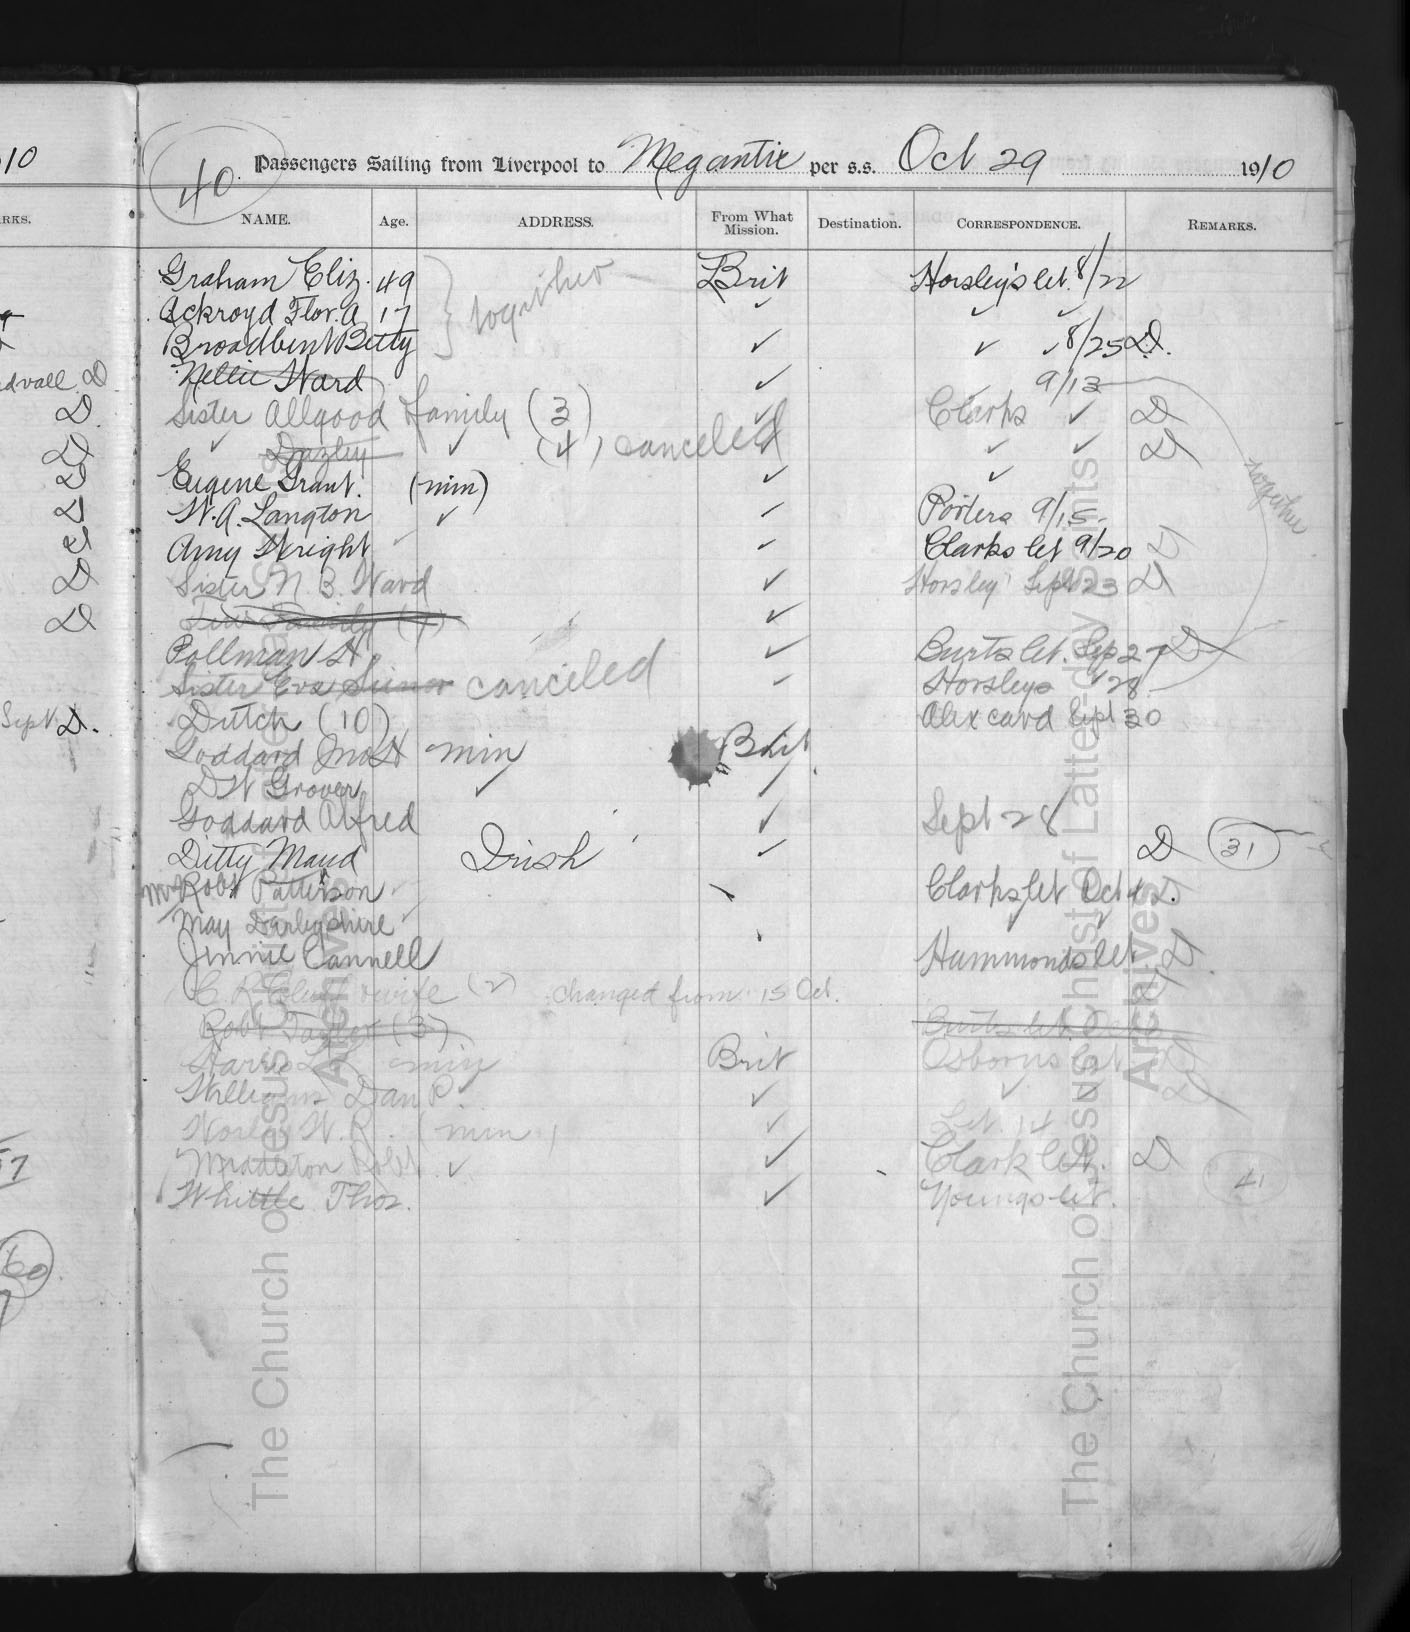 10
40. Passengers Sailing from Liverpool to Megantic per s.s. Oct 29 1910
RKS. NAME. Age. ADDRESS. From What Mission. Destination. CORRESPONDENCE. REMARKS.
Graham Eliz. 49 Brit Horsley's let. 8/22
Ackroyd Flor. A. 17 } together ✓ ✓ ✓
Broadbent Betty ✓ ✓ ✓ 8/25 D.
Nellie Ward ✓ 9/13
Sister Allgood family (3) ✓ Clarks ✓ D
✓ Dazley ✓ (4) canceled ✓ ✓ D
Eugene Grant. (min) ✓ ✓
together
W. A. Langton ✓ ✓ Porters 9/15
Amy Wright ✓ Clarks let 9/20 D
Sister N. B. Ward ✓ Horsley Sept 23 D
Family ✓
Pollman H. ✓ Burts let. Sep 27 D
Sister Eva canceled ✓ Horsleys " 28
Dutch (10) Alex card Sept 30
Goddard Jno H min Brit
D W Grover ✓ ✓
Goddard Alfred ✓ Sept 28
Ditty Maud Irish ✓ D 31
Mr Robt Patterson Clarks let Oct 4 D.
May Darbyshire
Jinnie Cannell Hammonds let D
C. R. wife (2) changed from 15 Oct.
Robt Taylor (3) Burts let
Harris min Brit Osborns let D
Williams Dan P ✓ ✓ D
W. R. (min) ✓ Let. 14
Middleton Robt ✓ ✓ Clark let. D 41
Whittle Thos. ✓ Youngs let.
60
The Church of Jesus Christ of Latter-day Saints
Archives
The Church of Jesus Christ of Latter-day Saints
Archives